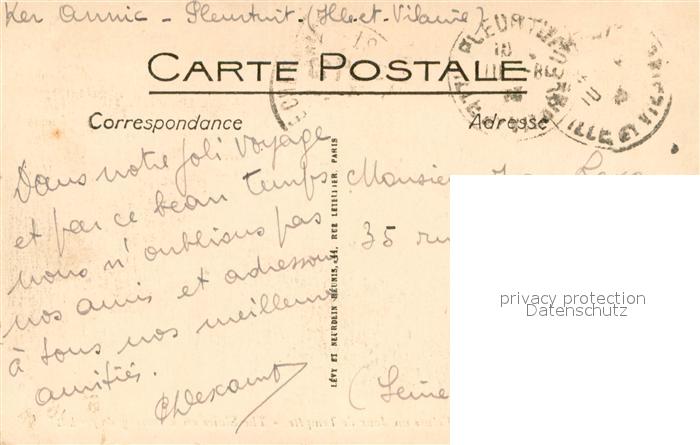 Ker Annic - Pleurtuit. (Ille-et-Vilaine)
CARTE POSTALE
Correspondance
Adresse
Dans notre joli voyage
et par ce beau temps
nous n'oublions pas
nos amis et adressons
à tous nos meilleures
amitiés.
LÉVY ET NEURDEIN RÉUNIS, 44, RUE LETELLIER, PARIS
Monsieur
35 rue
(Seine
PLEURTUIT
ILLE ET VILAINE
privacy protection
Datenschutz